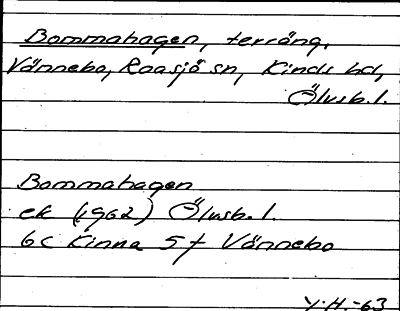 Bommahagen, terräng,
Vännebo, Roasjö sn, Kinds hd,
Älvsb. l.
Bommahagen
ek (1962) Älvsb. l.
6c Kinna 5f Vännebo
Y. H. -63